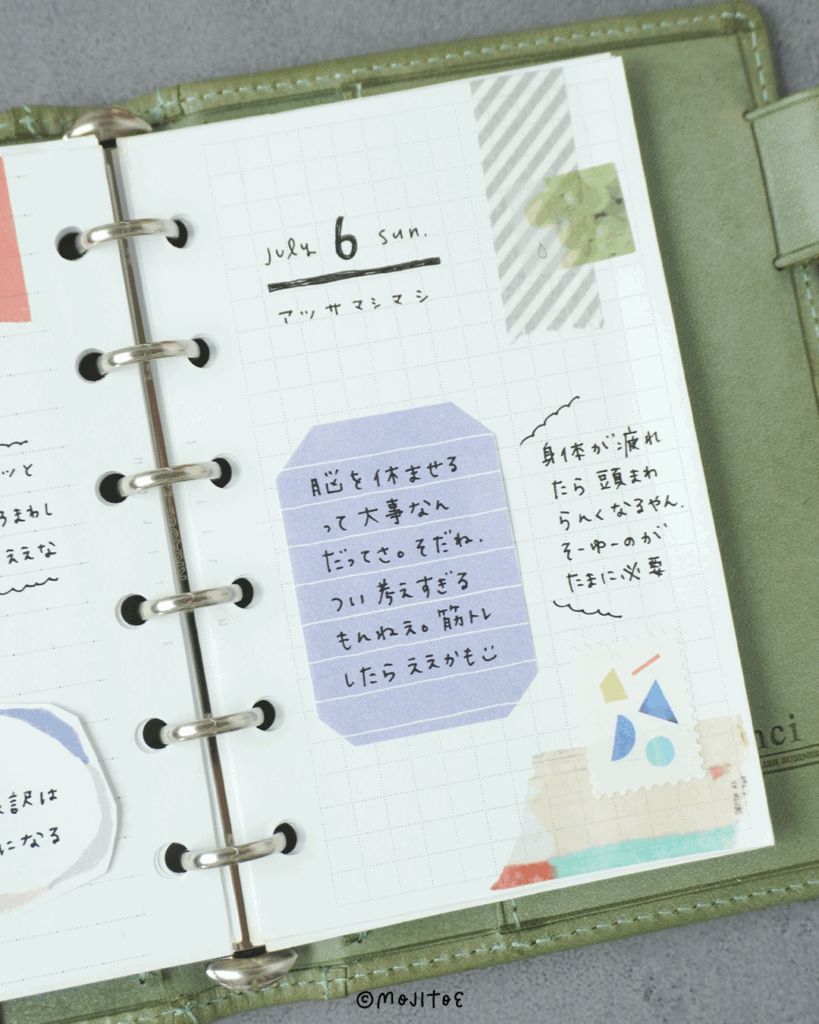 ッと
まわし
ええな
訳は
になる
july 6 sun.
アツサマシマシ
脳を休ませる
って大事なん
だってさ。そだね.
つい考えすぎる
もんねえ。筋トレ
したらええかも
身体が疲れ
たら頭まわ
らんくなるやん.
そーゆーのが
たまに必要
nci
©MOJITOE